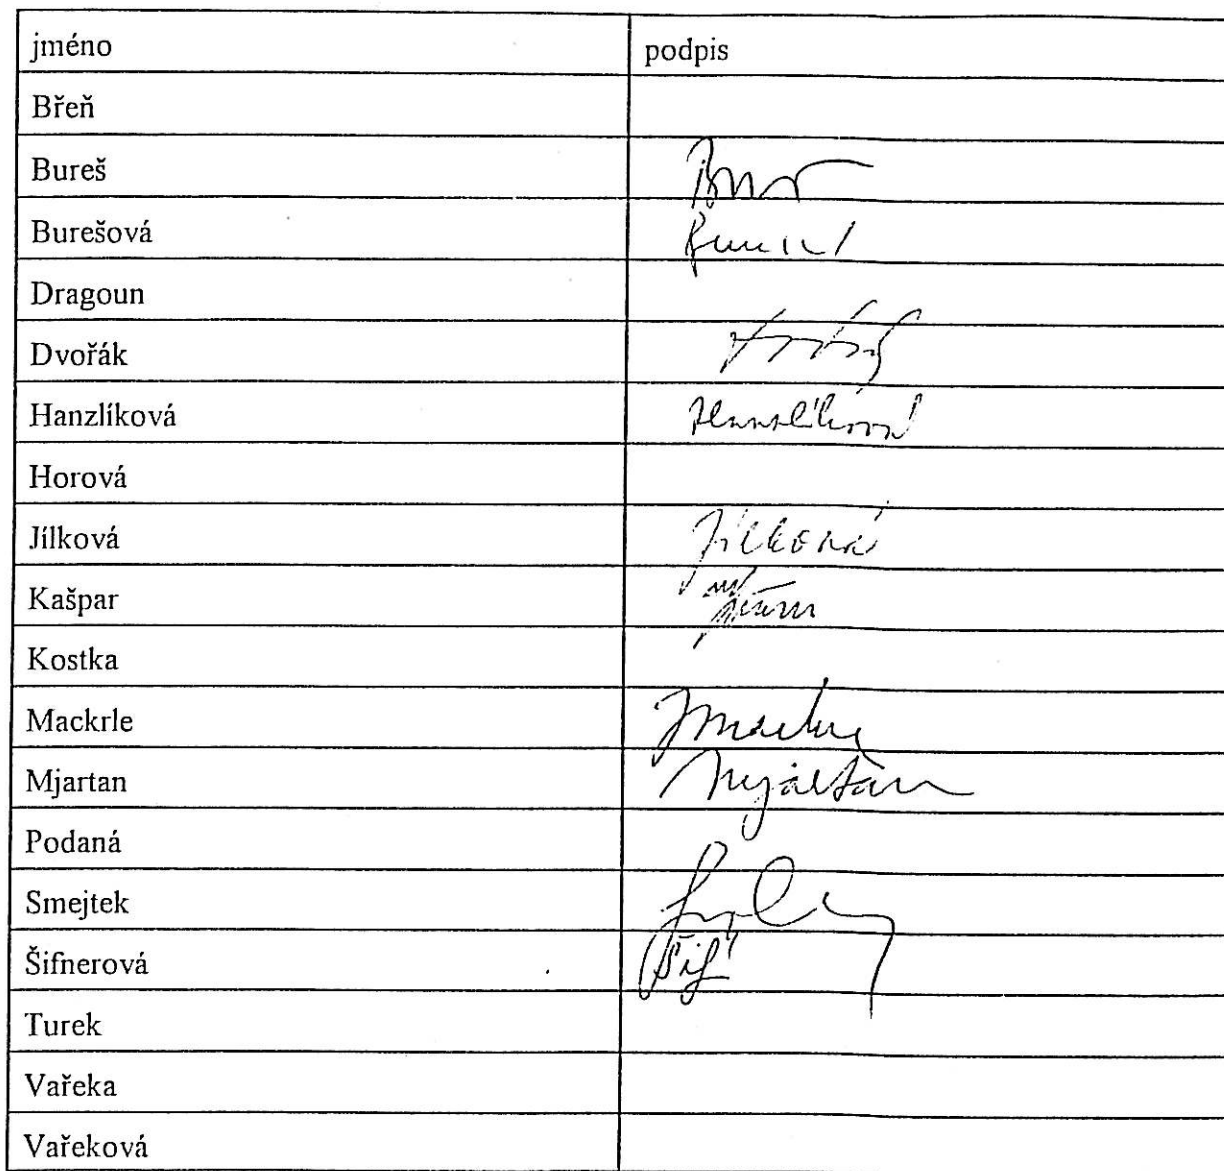 jméno podpis
Břeň
Bureš
Burešová
Dragoun
Dvořák
Hanzlíková Hanzlíková
Horová
Jílková Jílková
Kašpar
Kostka
Mackrle
Mjartan Mjartan
Podaná
Smejtek
Šifnerová Šif
Turek
Vařeka
Vařeková